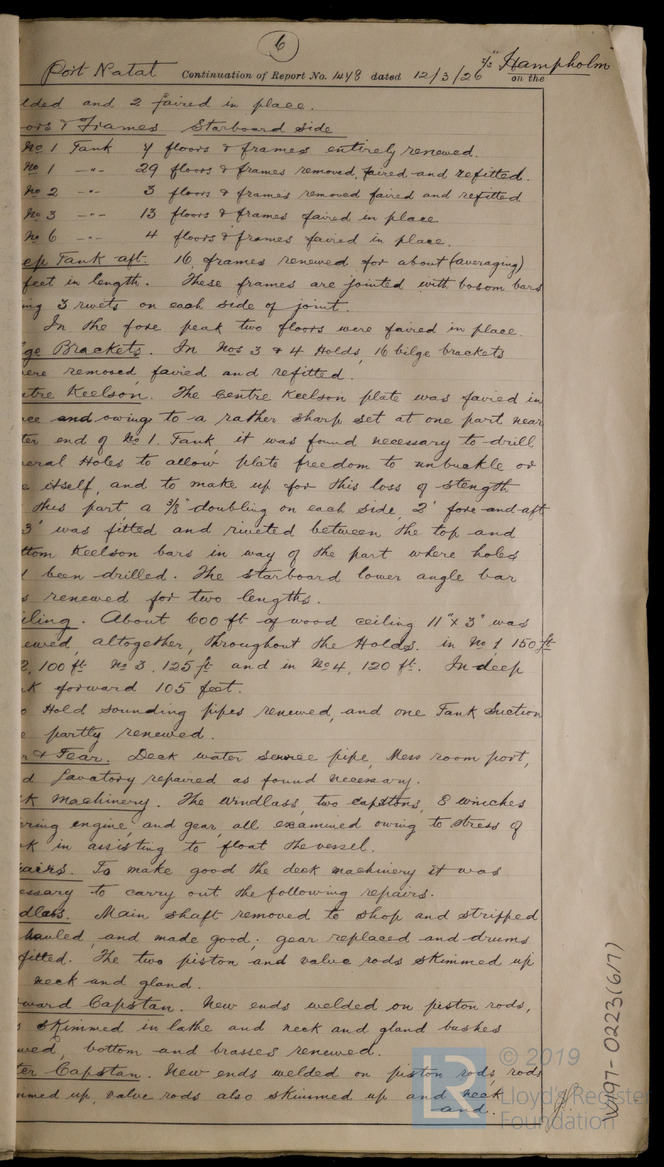 6
Port Natal Continuation of Report No. 1448 dated 12/3/26 on the S/S Hampholm
lded and 2 faired in place.
ors & Frames Starboard side
No 1 Tank 4 floors & frames entirely renewed.
No 1 -"- 29 floors & frames removed, faired and refitted.
No 2 -"- 3 floors & frames removed faired and refitted
No 3 -"- 13 floors & frames faired in place
No 6 -"- 4 floors & frames faired in place.
ep Tank aft. 16 frames renewed for about (averaging)
feet in length. These frames are jointed with bosom bars
ing 3 rivets on each side of joint.
In the fore peak two floors were faired in place.
ge Brackets. In Nos 3 & 4 Holds, 16 bilge brackets
ere removed, faired and refitted.
ntre Keelson. The Centre Keelson plate was faired in
ce and owing to a rather sharp set at one part near
ter end of No 1. Tank, it was found necessary to drill
eral Holes to allow plate freedom to unbuckle or
e itself, and to make up for this loss of stength
this part a 3/8" doubling on each side, 2' fore and aft
3' was fitted and riveted between the top and
ttom Keelson bars in way of the part where holes
d been drilled. The starboard lower angle bar
s renewed for two lengths.
iling. About 600 ft of wood ceiling 11" x 3" was
ewed, altogether, throughout the Holds. in No 1, 150 ft
2, 100 ft No 3, 125 ft and in No 4, 120 ft. In deep
k forward 105 feet.
o Hold sounding pipes renewed, and one Tank Suction
e partly renewed.
r & Tear. Deck water service pipe, Mess room port,
d Lavatory repaired as found necessary.
k Machinery. The windlass, two capstans, 8 winches
ring engine, and gear, all examined owing to stress of
k in assisting to float the vessel.
pairs. To make good the deck machinery it was
essary to carry out the following repairs.
dlass. Main shaft removed to shop and stripped
hauled, and made good; gear replaced and drums
fitted. The two piston and valve rods skimmed up
neck and gland.
ward Capstan. New ends welded on piston rods,
s skimmed in lathe and neck and gland bushes
wed, bottom end brasses renewed.
ter Capstan. New ends welded on piston rods, rods
mmed up, valve rods also skimmed up and neck
and.
W197-0223(6/7)
© 2019
LR
Lloyd's Register
Foundation